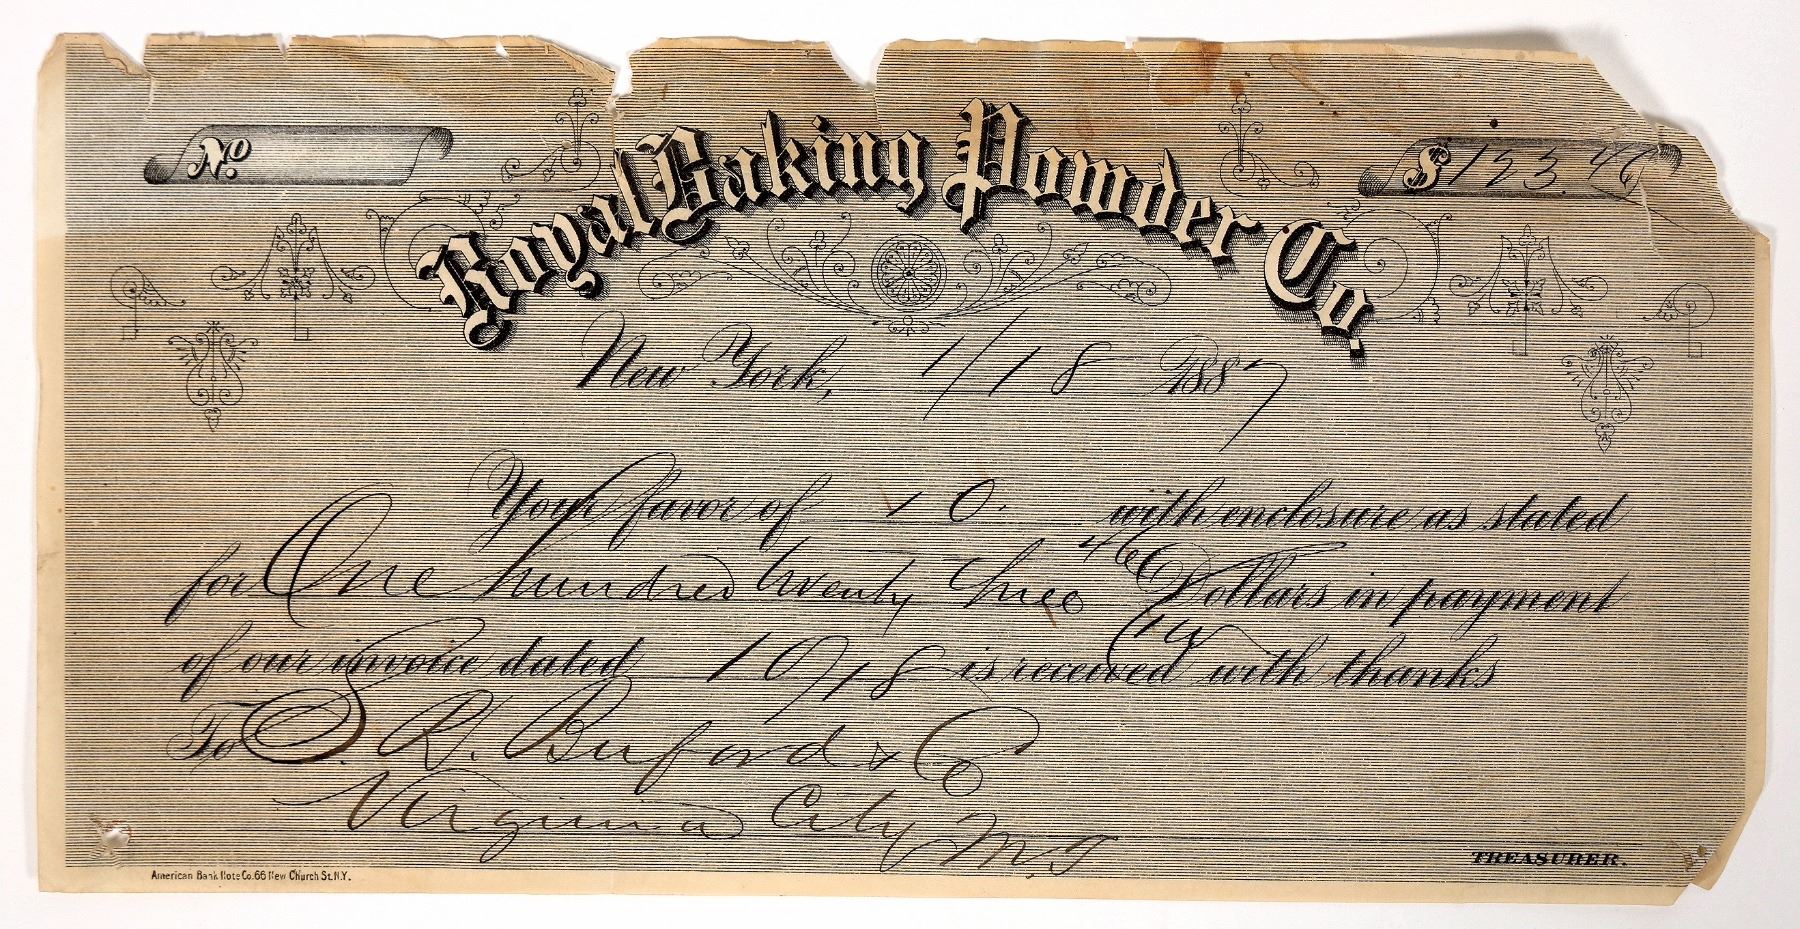 No.
$ 123.46
Royal Baking Powder Co.
New York, 1/18 1887
Your favor of 10. with enclosure as stated
for One hundred twenty three 46 Dollars in payment
of our invoice dated 10/18 is received with thanks
To S. R. Buford & Co
Virginia City M.T
TREASURER.
American Bank Note Co. 66 New Church St. N.Y.